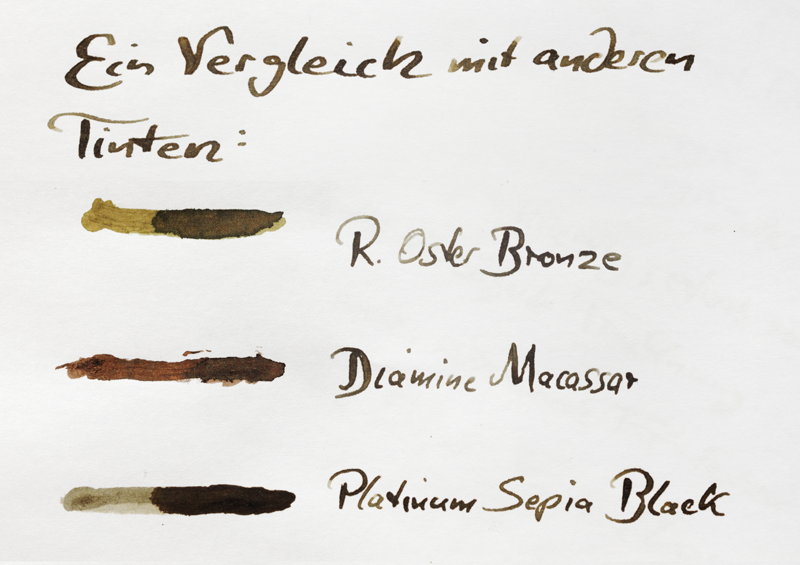 Ein Vergleich mit anderen
Tinten:
R. Oster Bronze
Diamine Macassar
Platinum Sepia Black